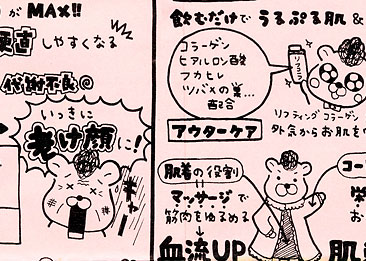 が MAX!!
硬直 しやすくなる
代謝不良@
いっきに
老け顔に!
ギャー
飲むだけで うるぷる肌 &
コラーゲン
ヒアルロン酸
フカヒレ
ツバメの巣…
配合
リフティングコラーゲン
アウターケア
外気からお肌を
肌着の役割
マッサージで
筋肉をゆるめる
血流UP
コー
お
肌